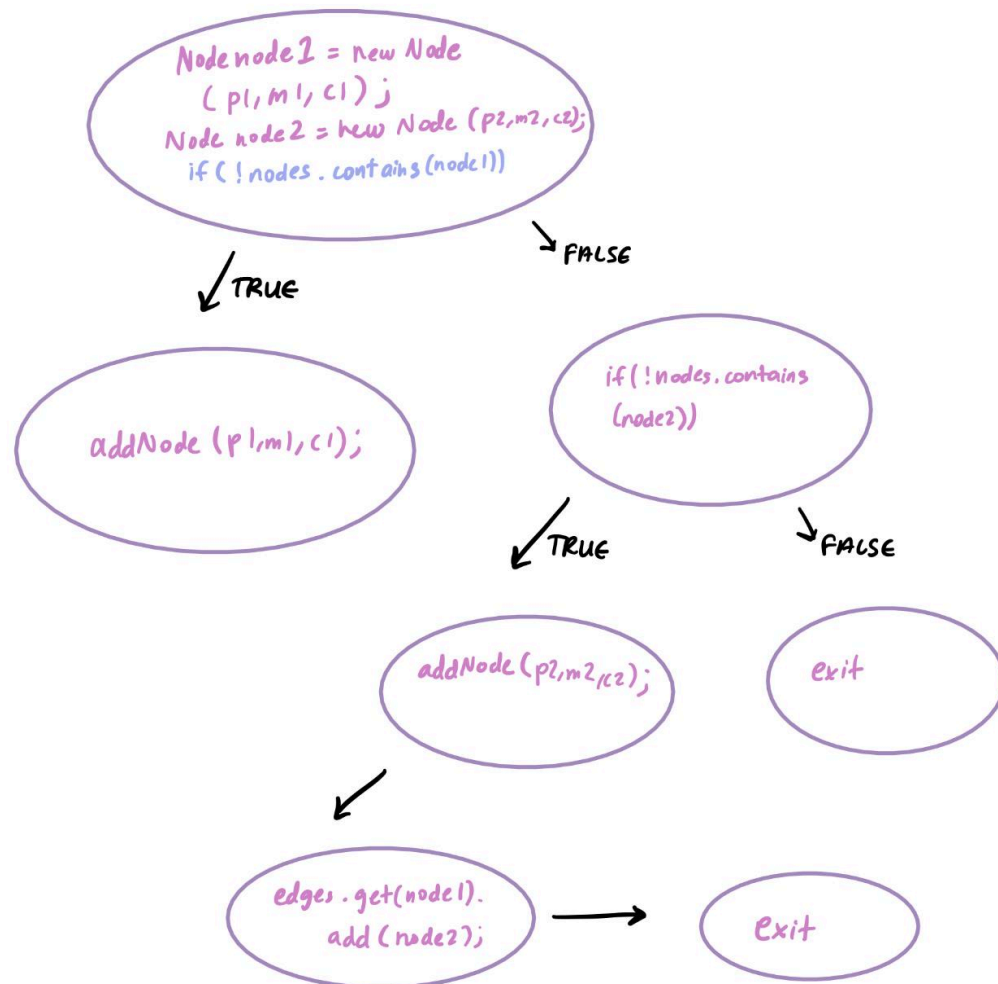 Node node1 = new Node
(p1,m1,c1);
Node node2 = new Node (p2,m2,c2);
if(!nodes.contains(node1))
FALSE
TRUE
if(!nodes.contains
(node2))
addNode(p1,m1,c1);
TRUE
FALSE
addNode(p2,m2,c2);
exit
edges.get(node1).
add(node2);
exit